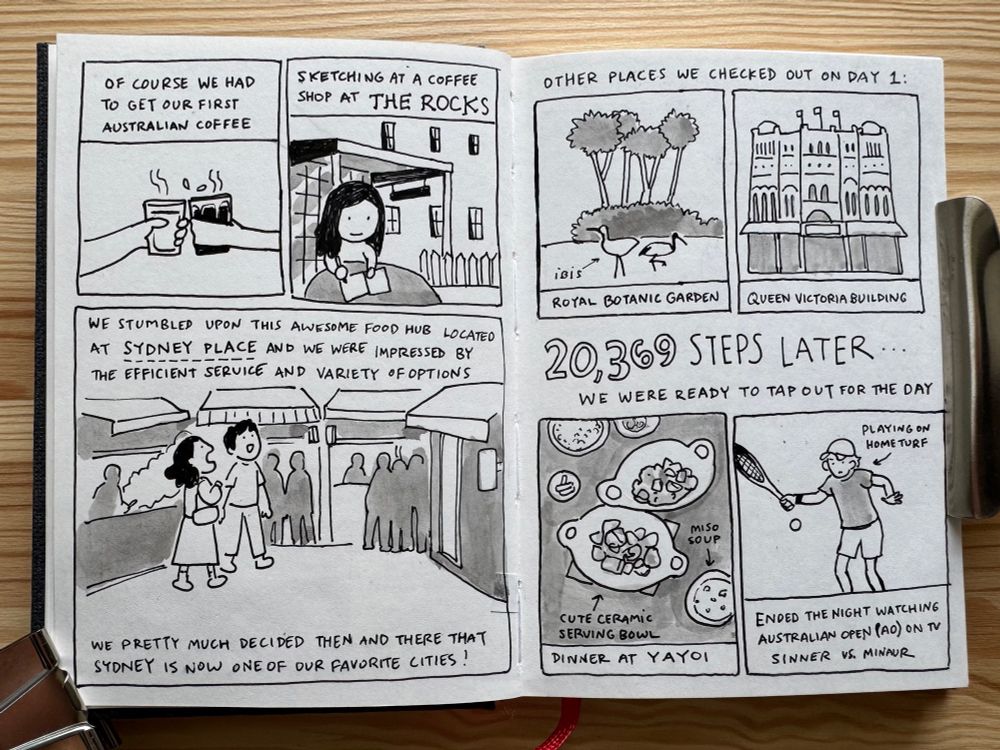 OF COURSE WE HAD
TO GET OUR FIRST
AUSTRALIAN COFFEE
SKETCHING AT A COFFEE
SHOP AT THE ROCKS
WE STUMBLED UPON THIS AWESOME FOOD HUB LOCATED
AT SYDNEY PLACE AND WE WERE IMPRESSED BY
THE EFFICIENT SERVICE AND VARIETY OF OPTIONS
WE PRETTY MUCH DECIDED THEN AND THERE THAT
SYDNEY IS NOW ONE OF OUR FAVORITE CITIES!
OTHER PLACES WE CHECKED OUT ON DAY 1:
iBiS
ROYAL BOTANIC GARDEN
QUEEN VICTORIA BUILDING
20,369 STEPS LATER...
WE WERE READY TO TAP OUT FOR THE DAY
MISO
SOUP
CUTE CERAMIC
SERVING BOWL
DINNER AT YAYOI
PLAYING ON
HOME TURF
ENDED THE NIGHT WATCHING
AUSTRALIAN OPEN (AO) ON TV
SINNER VS. MINAUR